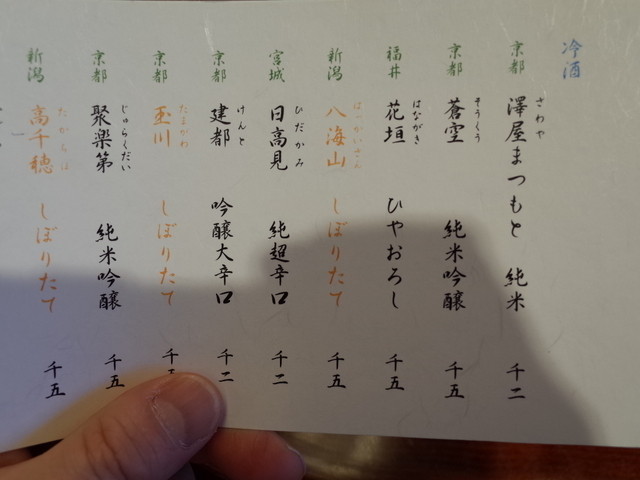 冷酒
京都 澤屋まつもと 純米 千二
さわや
京都 蒼空 純米吟醸 千五
そうくう
福井 花垣 ひやおろし 千五
はながき
新潟 八海山 しぼりたて 千五
はっかいさん
宮城 日高見 純超辛口 千二
ひだかみ
京都 建都 吟醸大辛口 千二
けんと
京都 玉川 しぼりたて 千
たまがわ
京都 聚楽第 純米吟醸 千五
じゅらくだい
新潟 高千穂 しぼりたて 千五
たかちほ